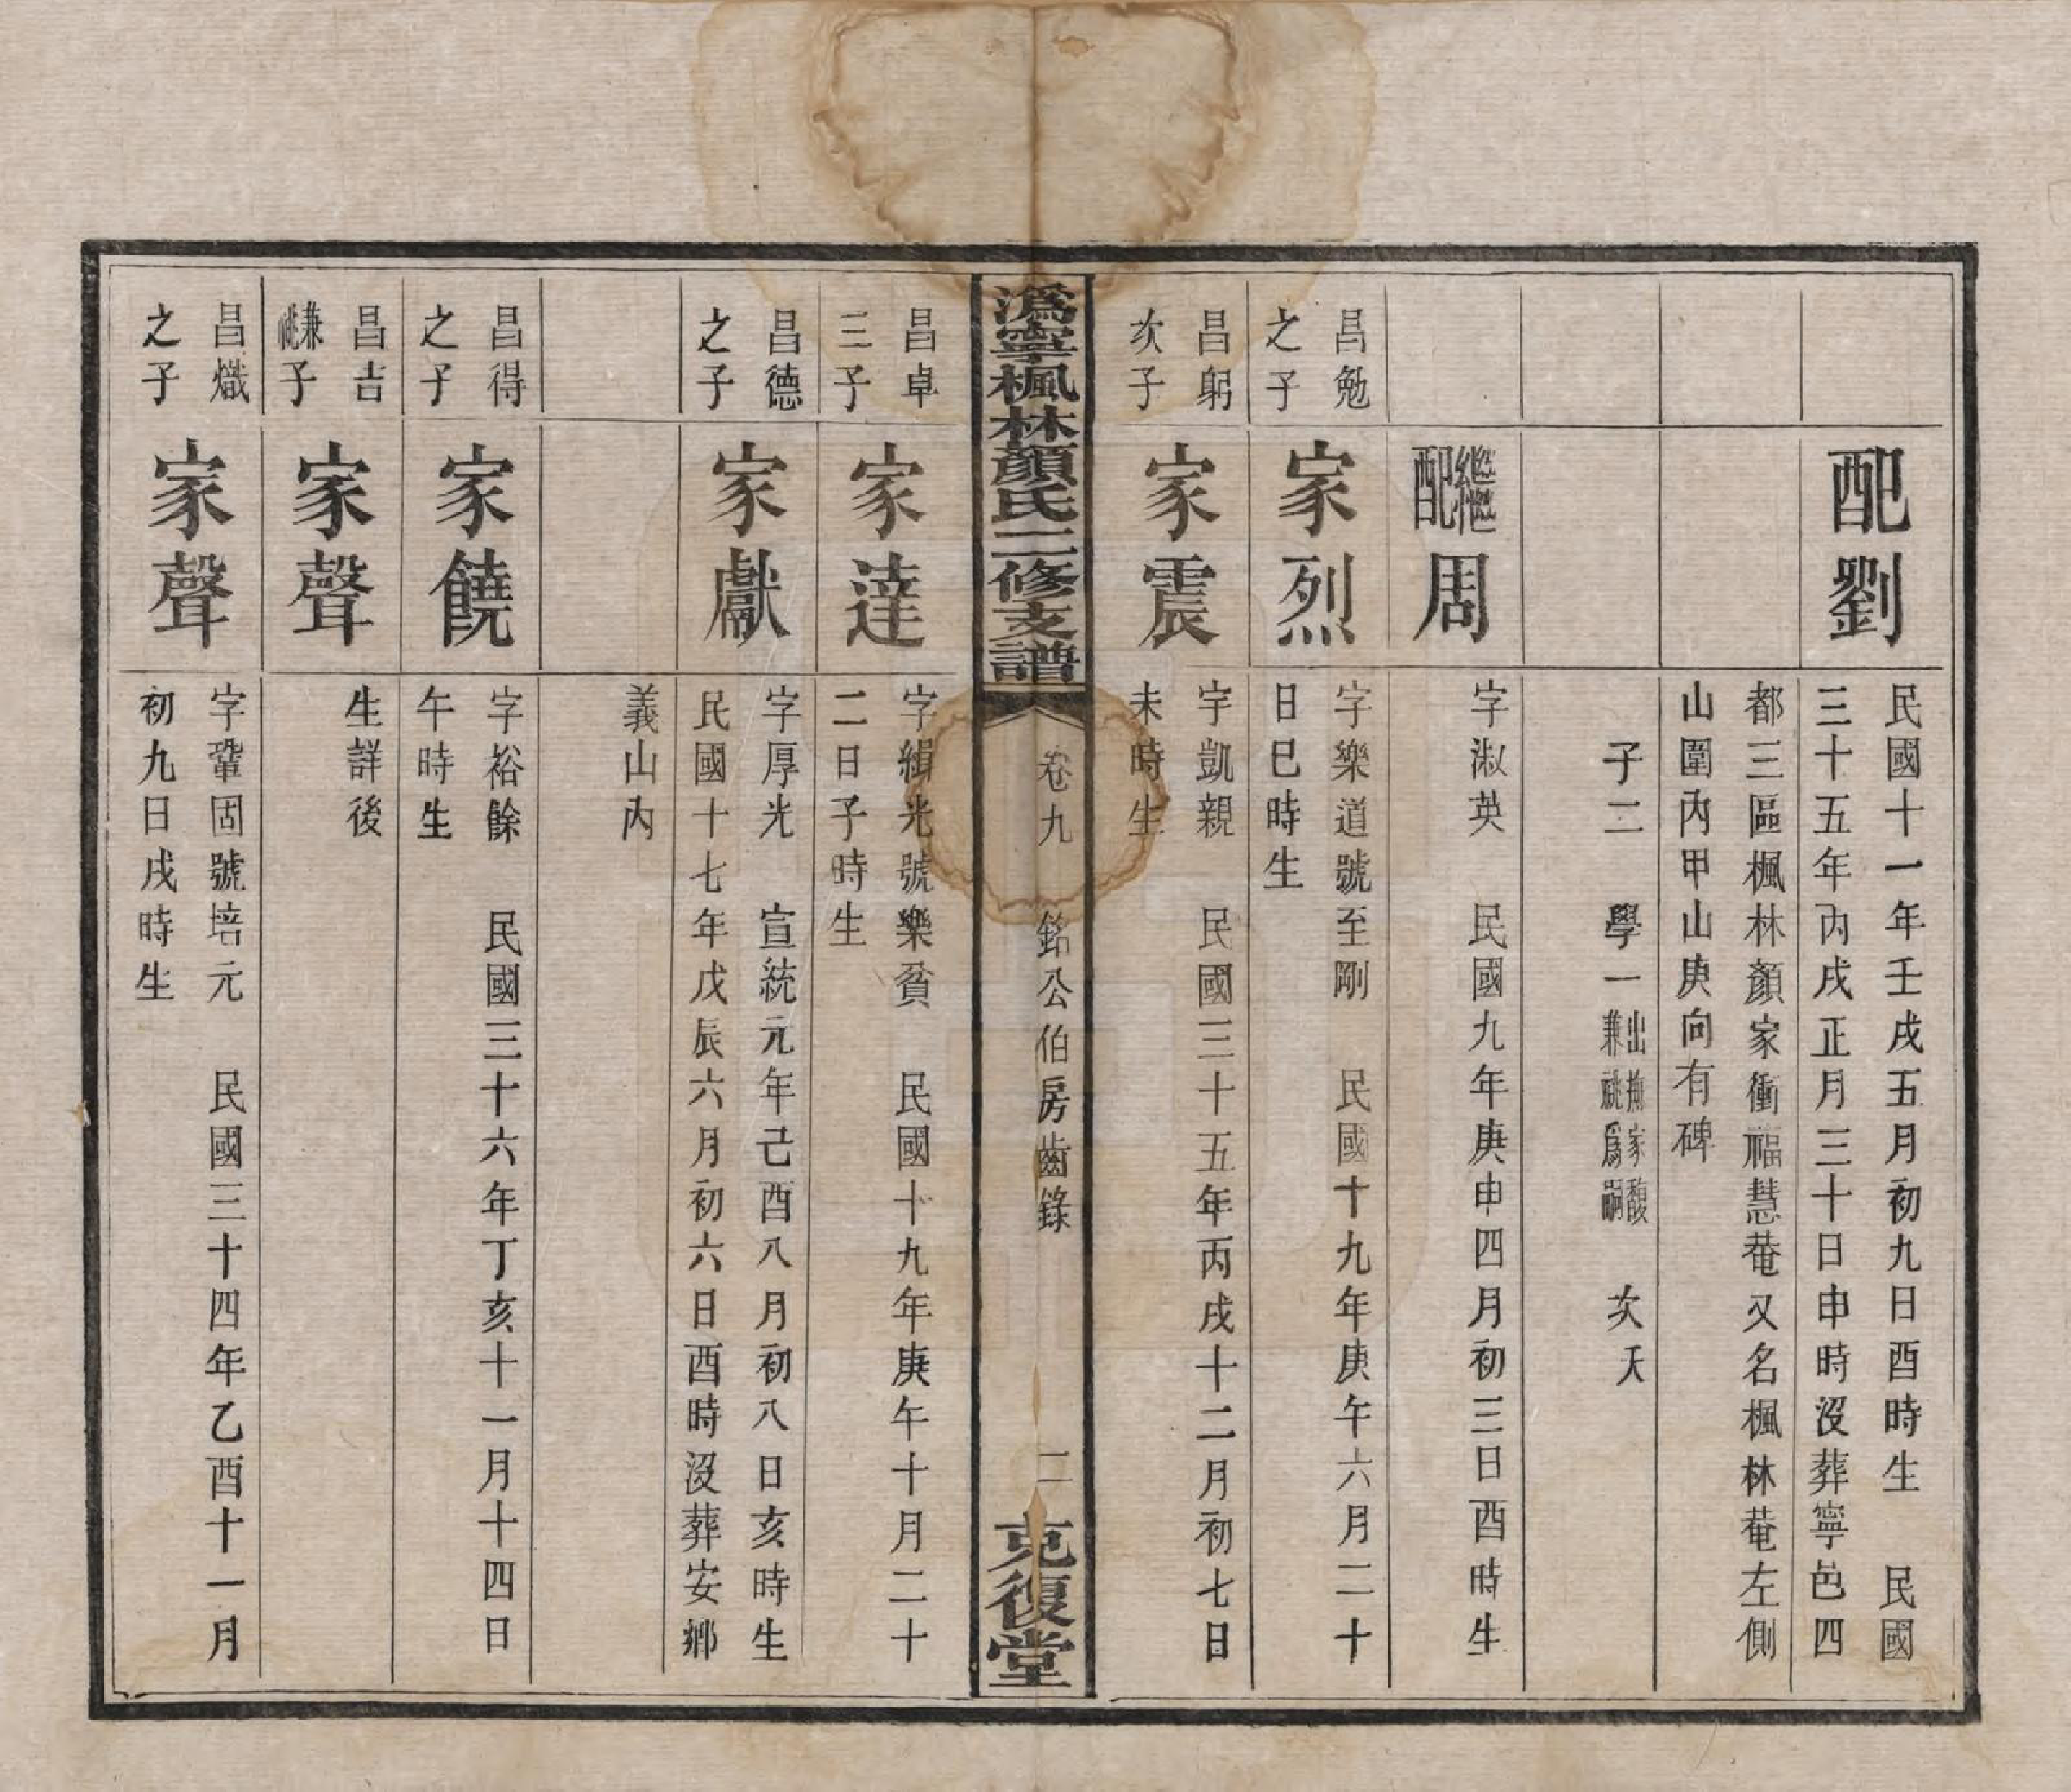 配劉
民國十一年壬戌五月初九日酉時生　民國
三十五年丙戌正月三十日申時沒葬寧邑四
都三區楓林顏家衝福慧菴又名楓林菴左側
山圍內甲山庚向有碑
子二　學一　出撫家馥兼祧爲嗣　次夭
繼配周
字淑英　民國九年庚申四月初三日酉時生
昌勉之子
家烈
字樂道號至剛　民國十九年庚午六月二十
日巳時生
昌躬次子
家震
字凱親　民國三十五年丙戌十二月初七日
未時生
溈寧楓林顏氏二修支譜
卷九　銘公伯房齒錄
二
克復堂
昌卓三子
家達
字緝光號樂貧　民國十九年庚午十月二十
二日子時生
昌德之子
家獻
字厚光　宣統元年己酉八月初八日亥時生
民國十七年戊辰六月初六日酉時沒葬安鄉
義山內
昌得之子
家饒
字裕餘　民國三十六年丁亥十一月十四日
午時生
昌吉兼祧子
家聲
生詳後
昌熾之子
家聲
字鞏固號培元　民國三十四年乙酉十一月
初九日戌時生